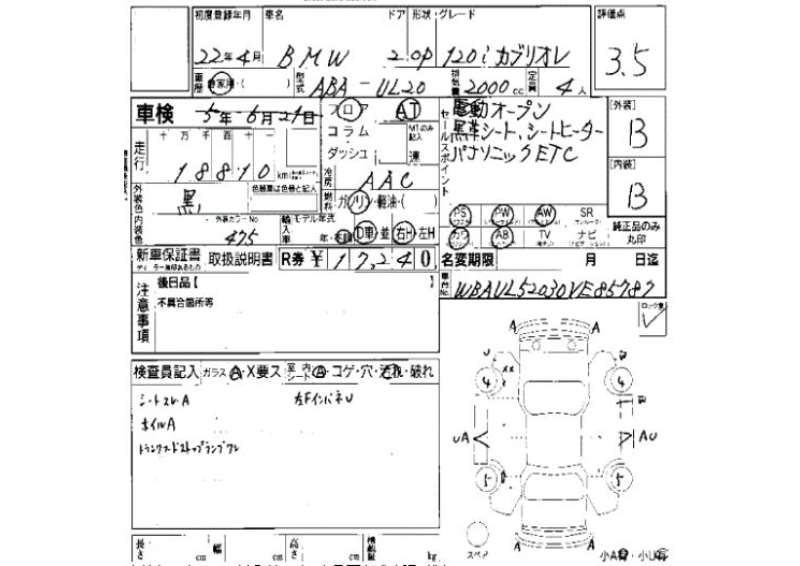 初度登録年月 車名 ドア 形状・グレード 評価点
22年4月 BMW 2.0P 120i カブリオレ 3.5
車歴 自家用・( ) 型式 ABA-UL20 排気量 2000cc 定員 4人
車検 5年6月21日 フロア AT
コラム MTのみ記入
ダッシュ 速
セールスポイント 電動オープン
黒革シート、シートヒーター
パナソニックETC
[外装] B
[内装] B
走行 十万千百十一
18810 km
冷房 AAC
燃料 ガソリン・軽油・( )
外装色 黒 色替車は色番と記入
内装色 外装カラーNo 475
輸入車 モデル年式 年・ D車・並 右H・左H
PS PW AW SR
AB TV ナビ
純正品のみ丸印
新車保証書 取扱説明書 R券 ¥ 17,240
ディーラー捺印あるもの
名変期限 月 日迄
車台No. WBAUL52030VE85787
注意事項 後日品 [ ]
不具合箇所等
検査員記入 ガラス A・X要ス 室内シート A・コゲ・穴・汚れ・破れ
シートスレA 左FインパネU
ホイルA
A A
U
xx
4 4
UA AU
5 5
A A
スペア
長さ cm 幅 cm 高さ cm 積載量 kg